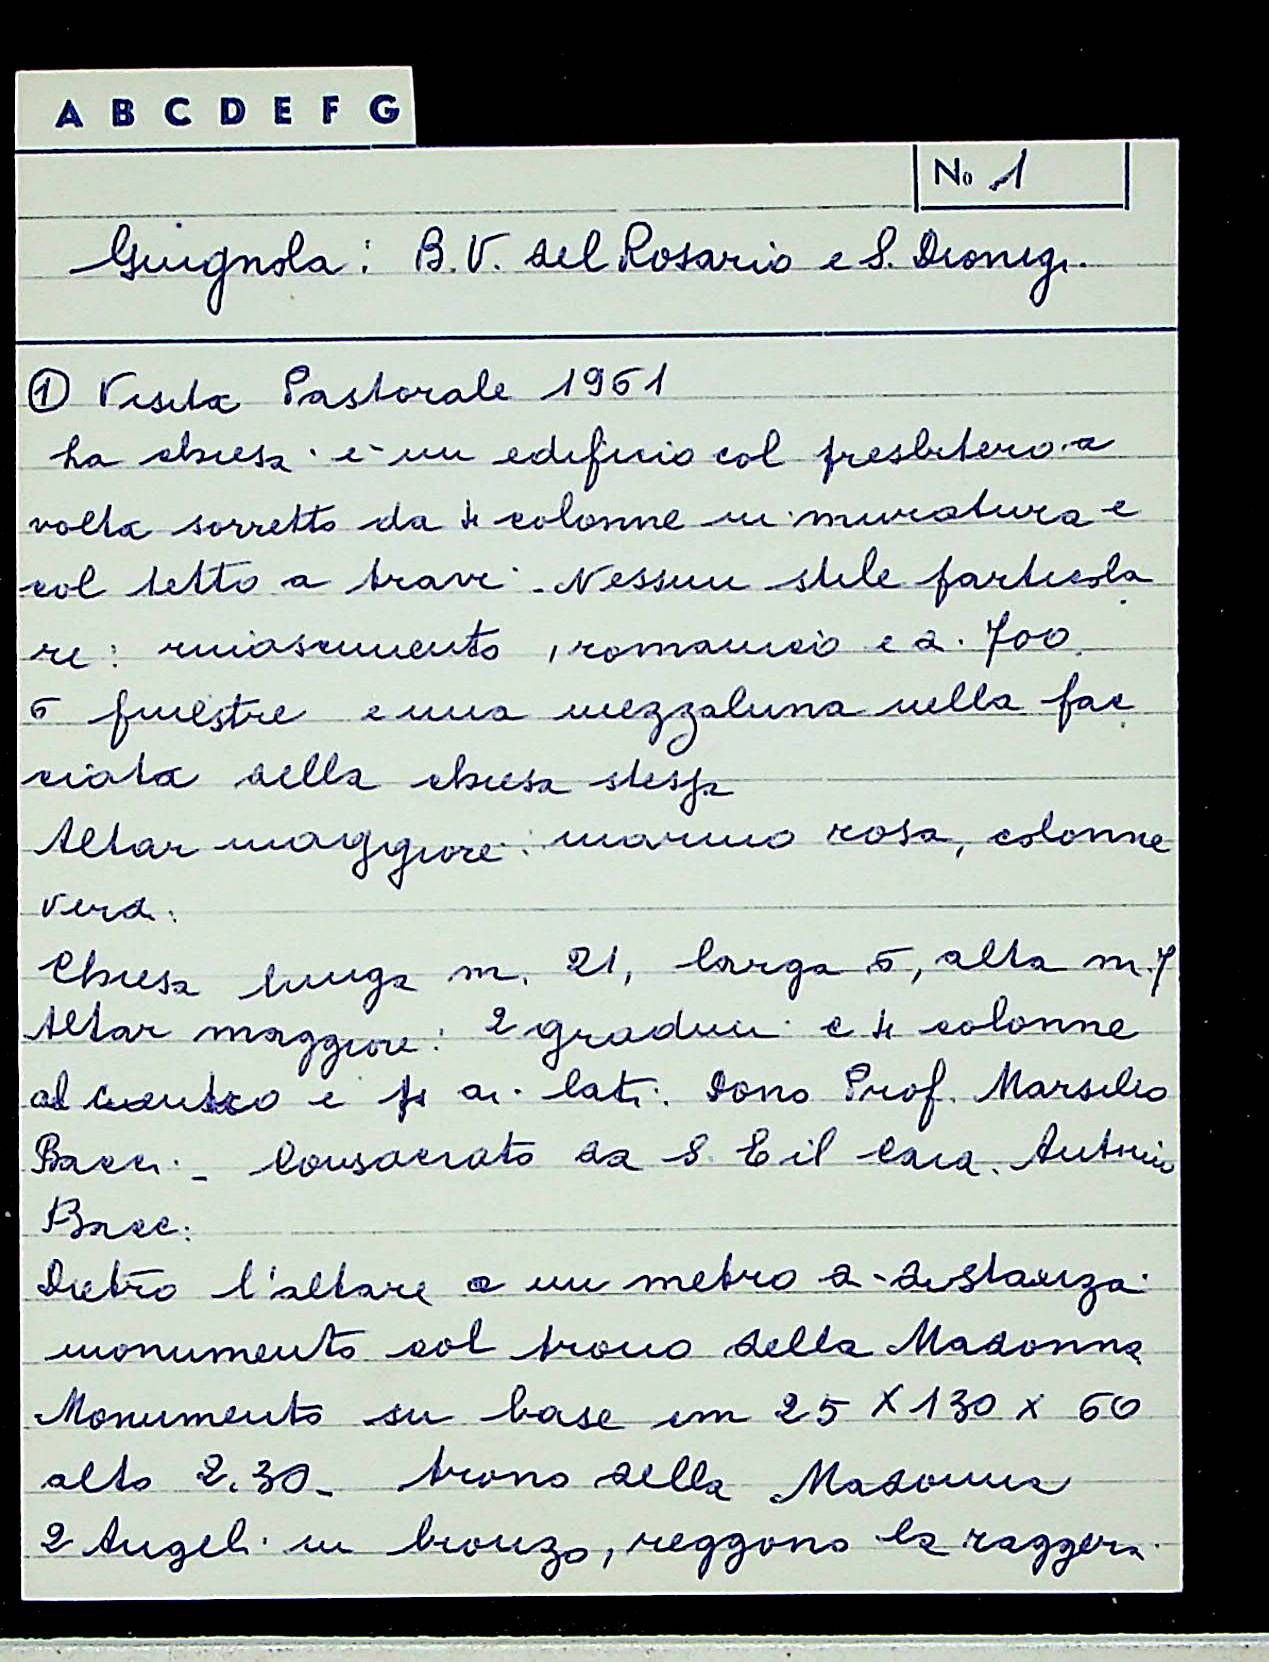 A B C D E F G
No 1
Giugnola: B.V. del Rosario e S. Dionigi.
① Visita Pastorale 1961
La chiesa è un edificio col presbitero a
volta sorretto da 4 colonne in muratura e
col tetto a travi. Nessun stile particola
re: rinascimento, romanico e 2. 700.
6 finestre e una mezzaluna nella fac
ciata della chiesa stessa
Altar maggiore: marmo rosa, colonne
verdi.
Chiesa lunga m. 21, larga 6, alta m. 7
Altar maggiore: 2 gradini e 4 colonne
al centro e 4 ai lati. Dono Prof. Marsilio
Bacci. - Consacrato da S. E il Card. Antonio
Bacci.
Dietro l'altare a un metro di distanza
monumento col trono della Madonna
Monumento su base cm 25 X 130 x 60
alto 2.30 - trono della Madonna
2 Angeli in bronzo, reggono la raggera